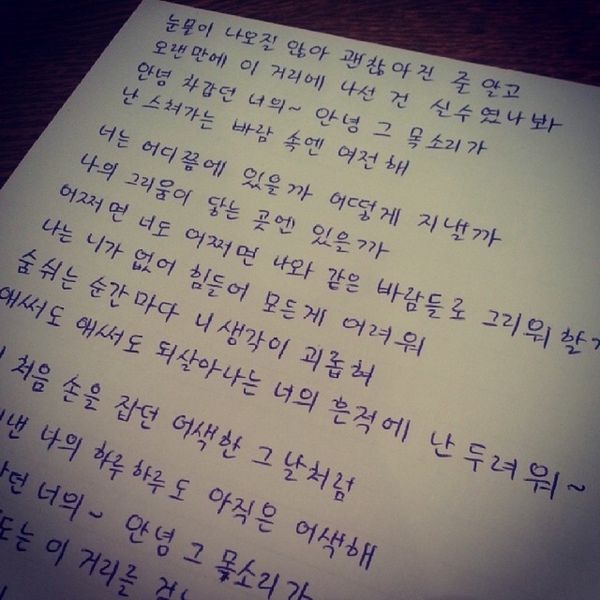 눈물이 나오질 않아 괜찮아진 줄 알고
오랜만에 이 거리에 나선 건 실수였나봐
안녕 차갑던 너의~ 안녕 그 목소리가
난 스쳐가는 바람 속엔 여전해
너는 어디쯤에 있을까 어떻게 지낼까
나의 그리움이 닿는 곳엔 있을까
어쩌면 너도 어쩌면 나와 같은 바람들로 그리워 할까
나는 니가 없어 힘들어 모든게 어려워
숨쉬는 순간마다 니 생각이 괴롭혀
애써도 애써도 되살아나는 너의 흔적에 난 두려워~
처음 손을 잡던 어색한 그 날처럼
나의 하루하루도 아직은 어색해
너의~ 안녕 그 목소리가
이 거리를